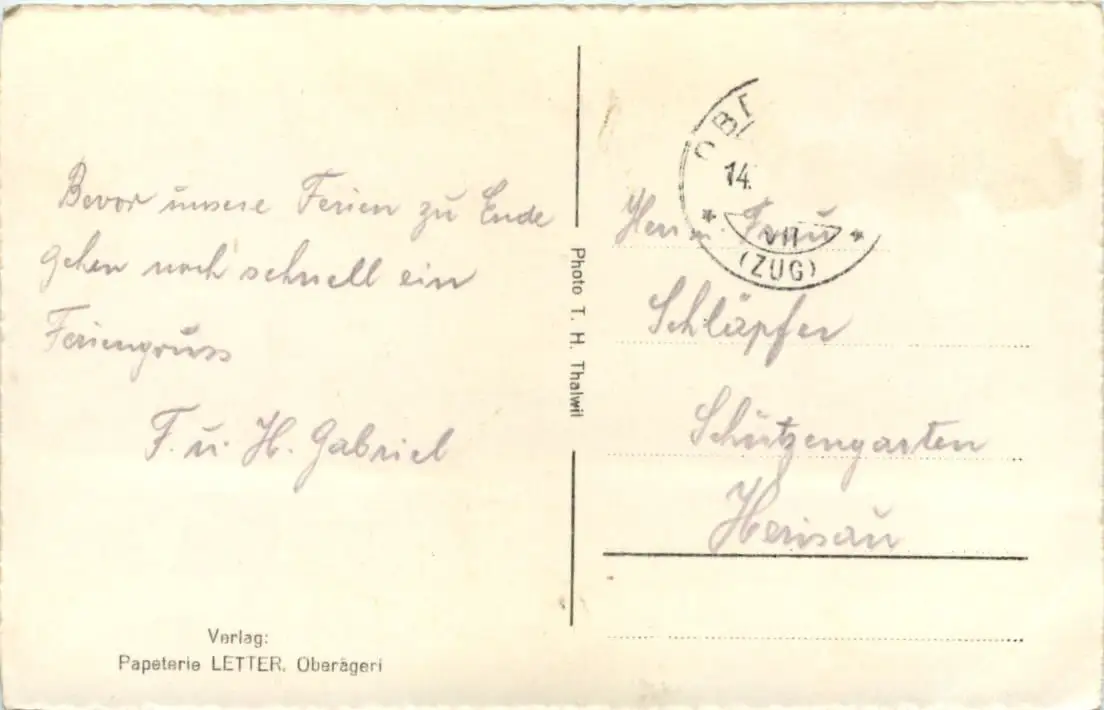 Bevor unsere Ferien zu Ende
gehen noch schnell ein
Feriengruss
F. u. H. Gabriel
Verlag:
Papeterie LETTER, Oberägeri
Photo T. H. Thalwil
14.
VII
(ZUG)
Herr u. Frau
Schläpfer
Schützengarten
Herisau